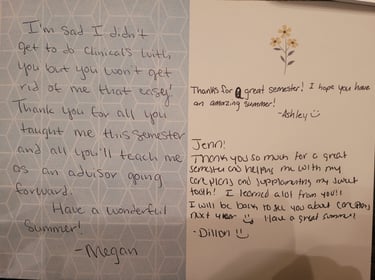 I'm sad I didn't
get to do clinicals with
you but you won't get
rid of me that easy!
Thank you for all you
taught me this semester
and all you'll teach me
as an advisor going
forward.
Have a wonderful
summer!
-Megan
Thanks for a great semester! I hope you have
an amazing summer!
-Ashley
Jenn!
Thank you so much for a great
semester and helping me with my
care plans and supplementing my sweet
tooth! I learned a lot from you!!
I will be back to see you about care plans
next year Have a great summer!
- Dillon